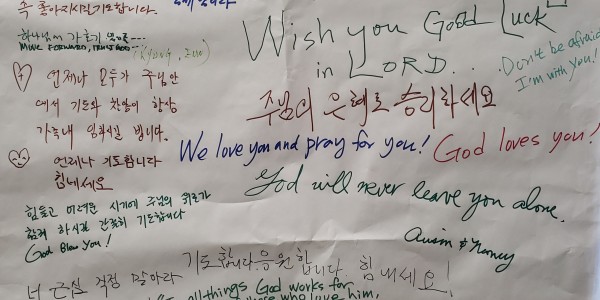 속 좋아지시길 기도합니다.
하나님이 가호가
MOVE FORWARD, TRUST GOD
언제나 모두가 주님안
에서 기도와 찬양이 항상
가득해 임하시길 빕니다.
언제나 기도합니다
힘내세요
힘들고 어려운 시기에 주님의 위로가
함께 하시길 간절히 기도합니다
God Bless You!
Wish you Good Luck
in LORD...
Don't be afraid
I'm with you!
주님의 은혜로 승리하세요
We love you and pray for you!
God loves you!
God will never leave you alone.
& Nancy
기도합니다 응원합니다. 힘내세요!
너 근심 걱정 말아라
all things God works for
who love him,